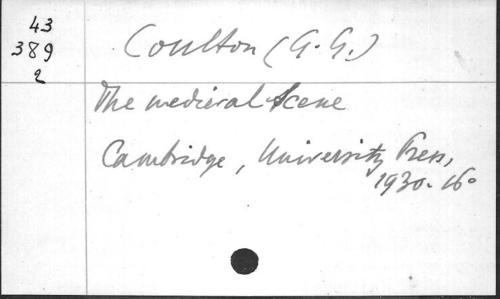 43
389
2
Coulton (G. G.)
The medieval Scene
Cambridge, University Press,
1930. 16°